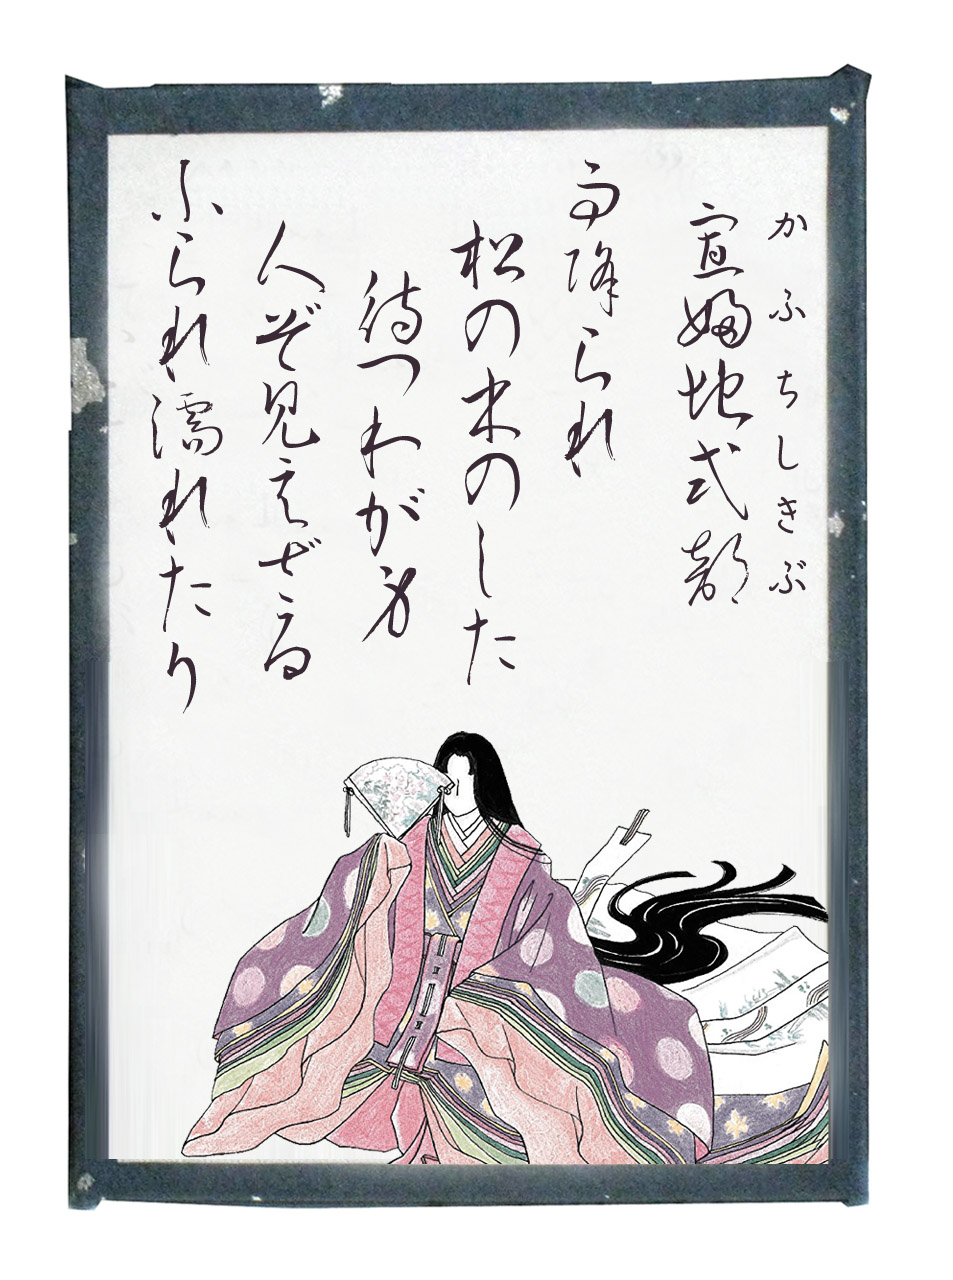 かふちしきぶ
宣婦地式部
雨降られ
松の木のした
待つわが身
人ぞ見えざる
ふられ濡れたり